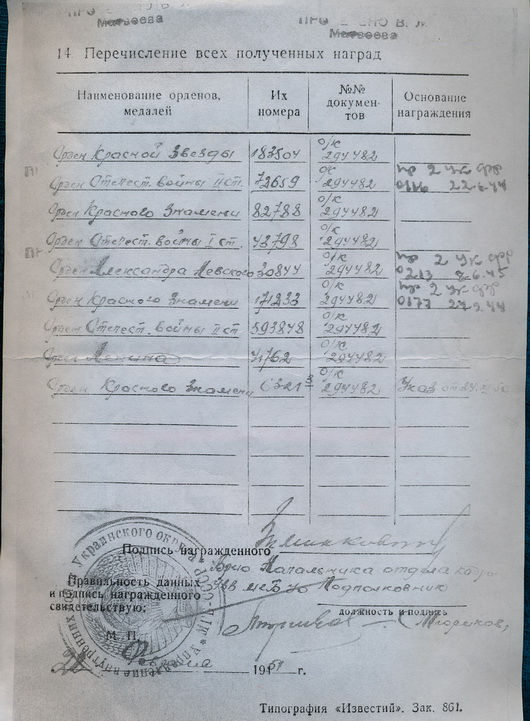 Матвеева
Матвеева
14. Перечисление всех полученных наград
Наименование орденов, медалей
Их номера
№№ документов
Основание награждения
Орден Красной Звезды 183504 о/к 294482
Орден Отечест. войны II ст. 72659 о/к 294482 пр 2 Укр фр 22-6-44
Орден Красного Знамени 82788 о/к 294482
Орден Отечест. войны I ст. 43798 о/к 294482
Орден Александра Невского 30844 о/к 294482 пр 2 Укр фр
Орден Красного Знамени 171233 о/к 294482 пр 2 Укр фр 0177
Орден Отечест. войны II ст. 593848 о/к 294482
Орден Ленина о/к 294482
Орден Красного Знамени о/к 294482 Указ от
Подпись награжденного
Врио Начальника отдела
Правильность данных
и подпись награжденного
свидетельствую:
Подполковник
должность и подпись
М. П.
февраля 1951 г.
Украинского округа
Типография «Известий». Зак. 861.